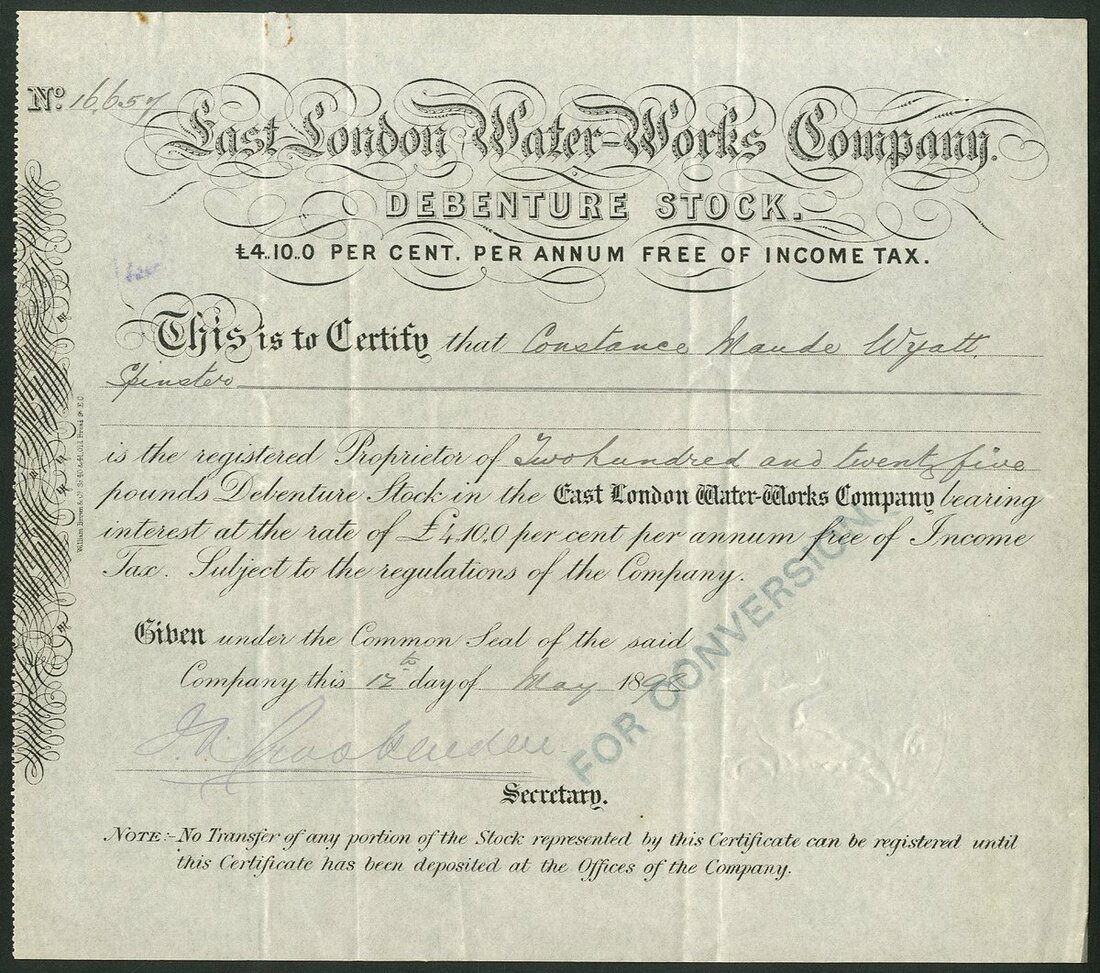 No. 16,657
East London Water-Works Company.
DEBENTURE STOCK.
£4..10..0 PER CENT. PER ANNUM FREE OF INCOME TAX.
This is to Certify that Constance Maude Wyatt
Spinster
is the registered Proprietor of Two hundred and twenty five
pounds Debenture Stock in the East London Water-Works Company bearing
interest at the rate of £4.10.0 per cent per annum free of Income
Tax. Subject to the regulations of the Company.
Given under the Common Seal of the said
Company this 12th day of May 189
FOR CONVERSION
Secretary.
NOTE:-No Transfer of any portion of the Stock represented by this Certificate can be registered until
this Certificate has been deposited at the Offices of the Company.